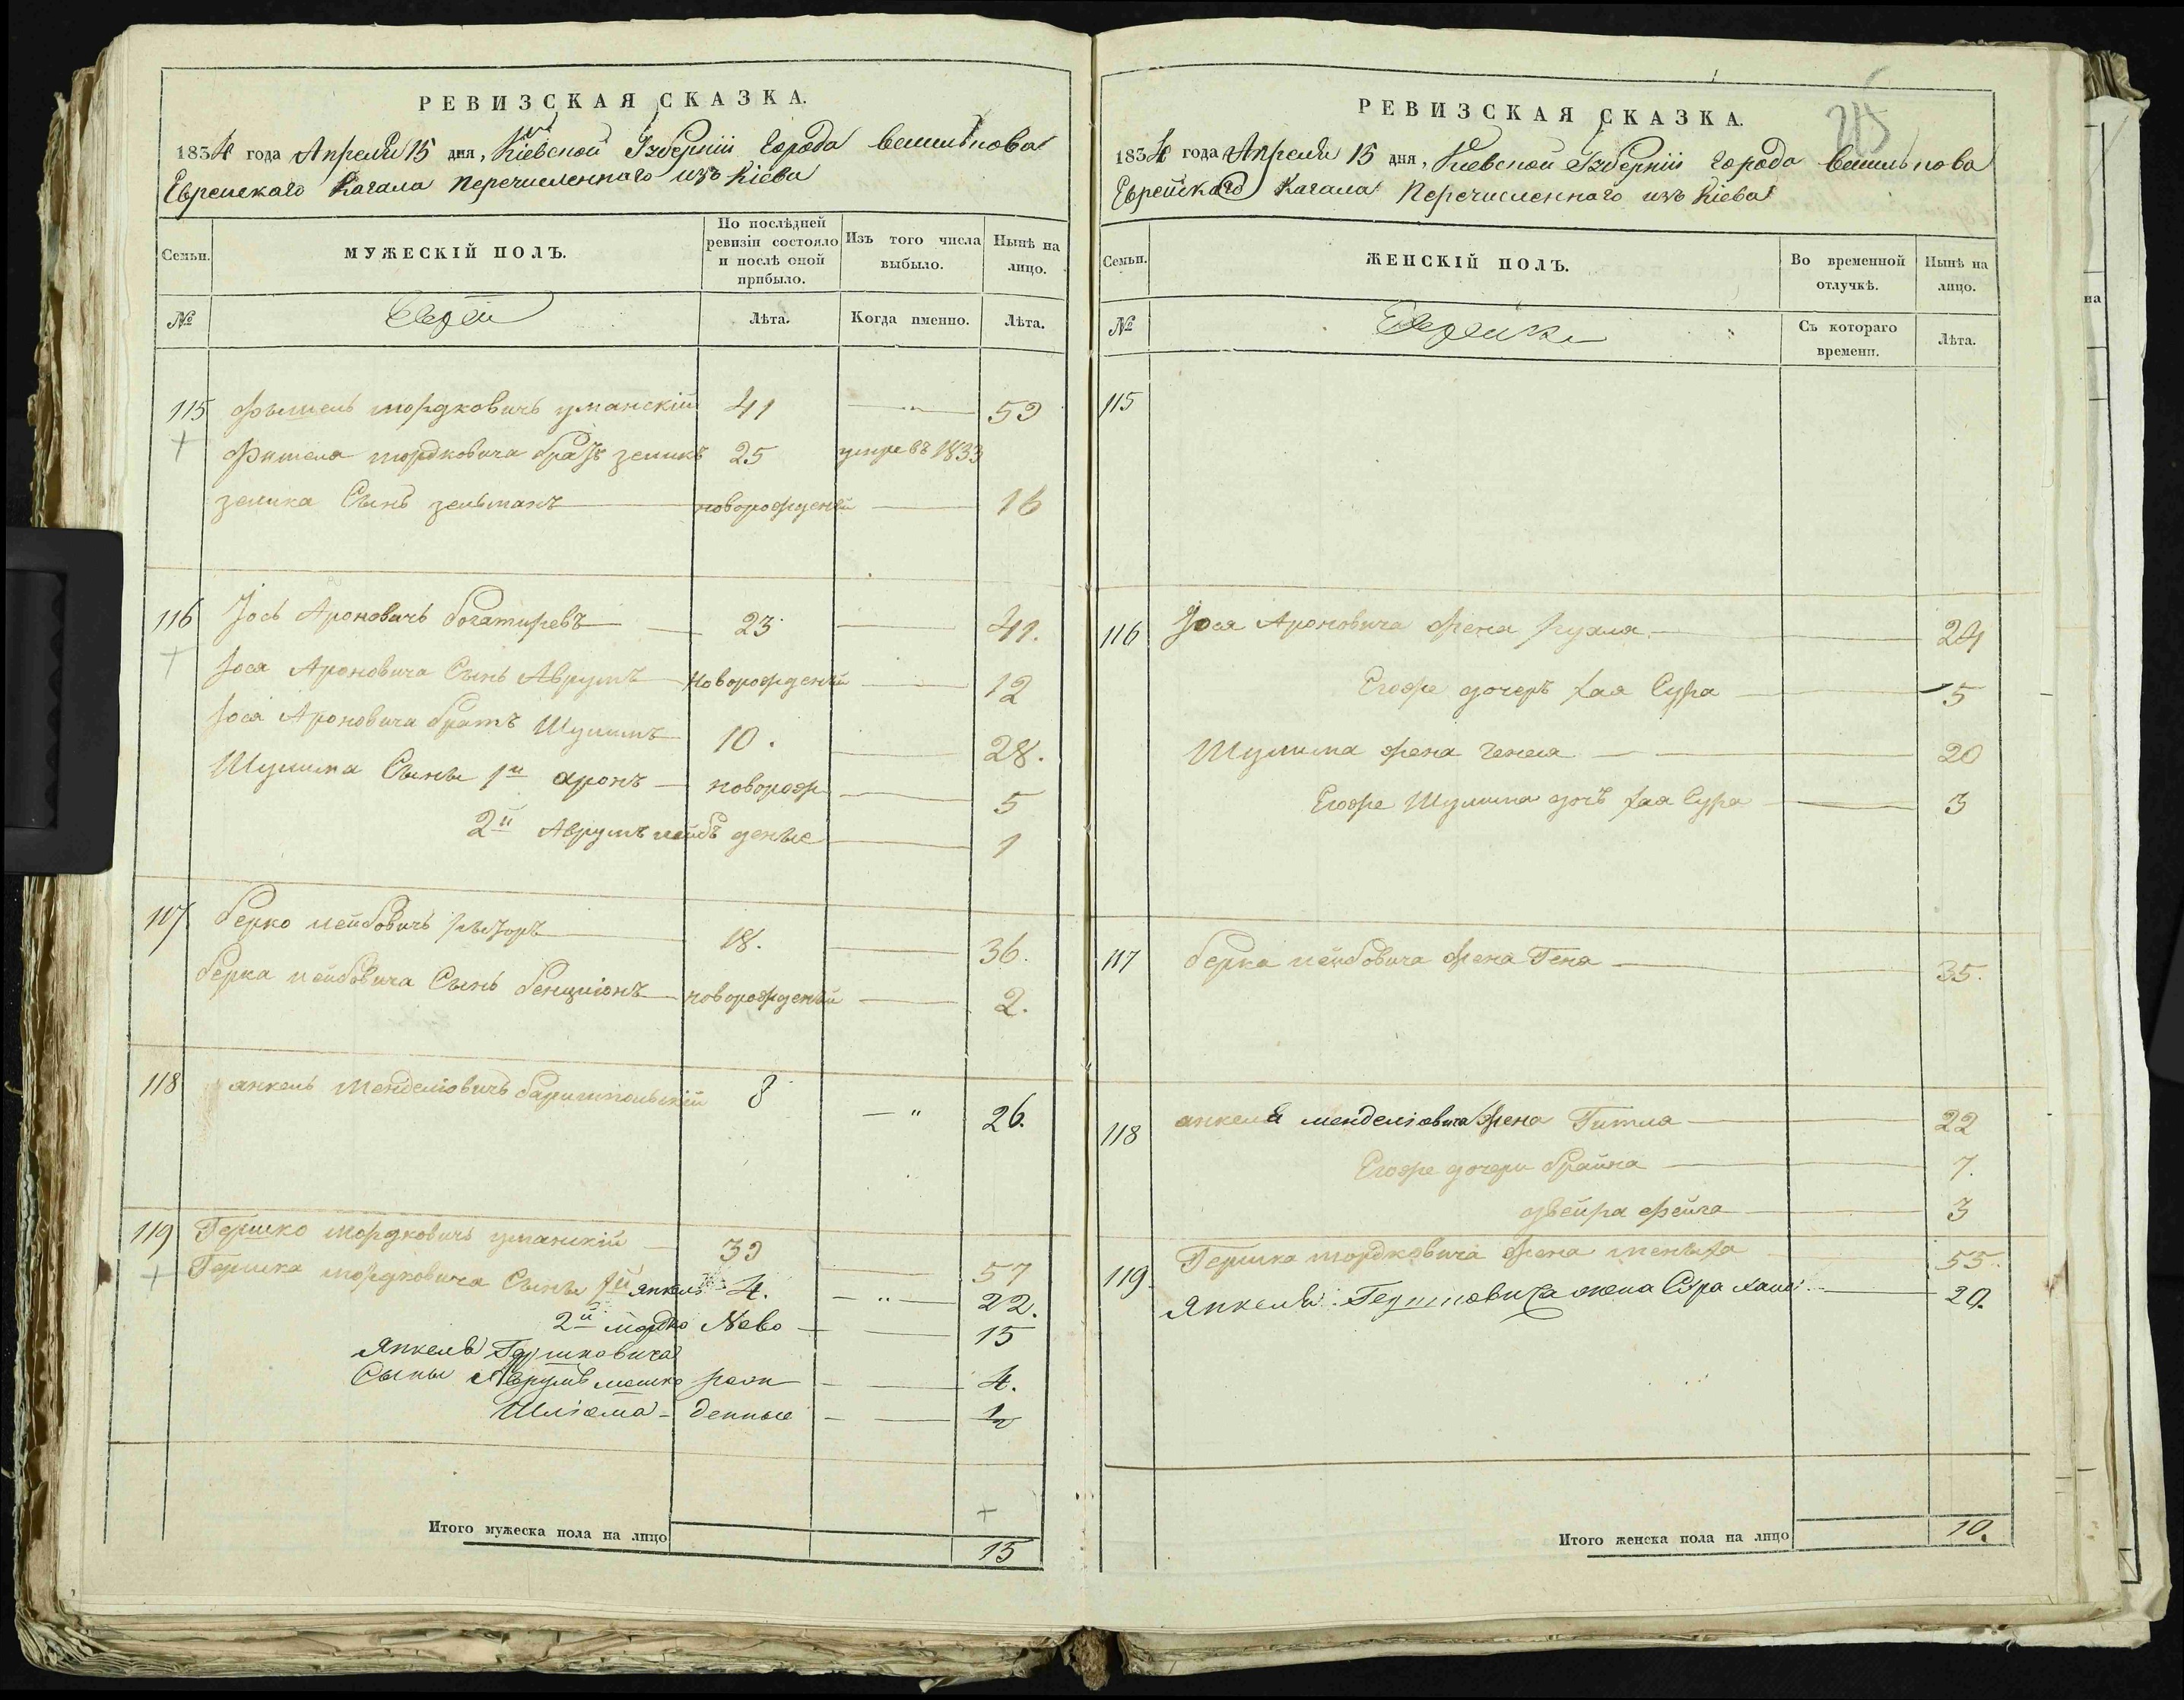 РЕВИЗСКАЯ СКАЗКА.
1834 года Апреля 15 дня, Кіевской Губерніи Города Василькова
Еврейскаго Кагала перечисленнаго изъ Кіева
Семьи.
МУЖЕСКІЙ ПОЛЪ.
По послѣдней ревизіи состояло и послѣ оной прибыло.
Изъ того числа выбыло.
Нынѣ на лицо.
№
Евреи
Лѣта.
Когда именно.
Лѣта.
115 Фишель мордковичъ уманскій 41 — 59
Фишеля мордковича братъ зеликъ 25 умре въ 1833
зелика Сынъ зельманъ новорожденый — 16
116 Іось Ароновичъ богатиревъ 23 — 41.
Іося Ароновича Сынъ Аврумъ новорожденый — 12
Іося Ароновича братъ Шулимъ 10. — 28.
Шулима Сыны 1й аронъ новорож — 5
2й Аврумъ лейбъ деные — 1
117 берко лейбовичъ 18. — 36.
берка лейбовича Сынъ бенционъ новорожденый — 2.
118 янкель менделіовичъ баришпольскій 8 — " 26.
119 Гершко мордковичъ уманскій 39 — 57
Гершка мордковича Сыны 1й янкель 4. — " — 22.
2й мордко Ново — 15
Янкеля Гершковича
Сыны Аврумъ мошко рож — 4.
Шліома - денные — 1/2
Итого мужеска пола на лицо 15
РЕВИЗСКАЯ СКАЗКА.
215
1834 года Апреля 15 дня, Кіевской Губерніи города Василькова
Еврейскаго Кагала Перечисленнаго изъ Кіева
Семьи.
ЖЕНСКІЙ ПОЛЪ.
Во временной отлучкѣ.
Нынѣ на лицо.
№
Еврейки
Съ котораго времени.
Лѣта.
115
116 Іося Ароновича жена рухля — 24
Егоже дочерь хая Сура — 5
Шулима жена генея — 20
Егоже Шулима дочь хая Сура — 3
117 берка лейбовича жена Геня — 35.
118 янкеля менделіовича жена Гитля — 22
Егоже дочери брайна — 7.
двейра фейга — 3
119 Гершка мордковича жена меныха 55.
Янкеля Гершковича жена Сура хана — 20.
Итого женска пола на лицо 10.